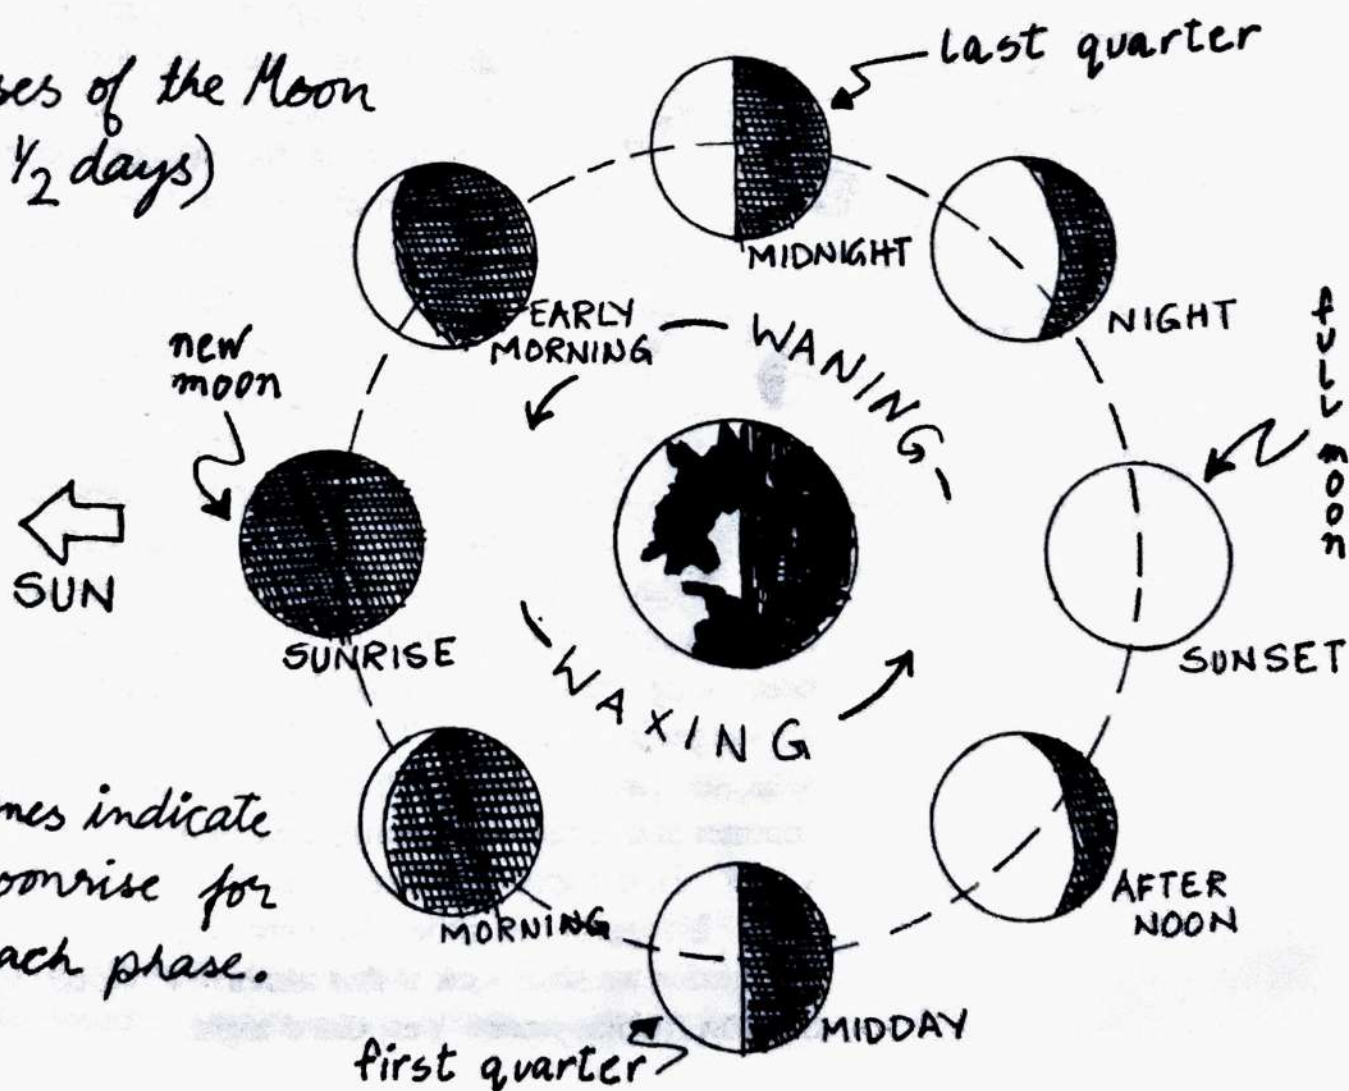 ses of the Moon
1/2 days)
last quarter
MIDNIGHT
NIGHT
full moon
EARLY
MORNING
WANING
new
moon
SUN
SUNRISE
SUNSET
WAXING
mes indicate
oonrise for
ach phase.
MORNING
AFTER
NOON
MIDDAY
first quarter